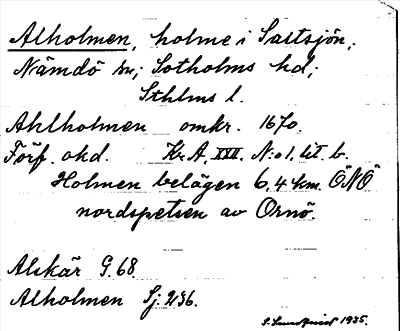 Alholmen, holme i Saltsjön,
Nämdö sn; Sotholms hd;
Sthlms l.
Ahlholmen omkr. 1670.
Förf. okd. Kr.A. XXII. N:o 1. lit. b.
Holmen belägen 6,4 km. ÖNÖ
nordspetsen av Ornö.
Alskär G. 68
Alholmen Sj. 236.
S. Sundqvist 1935.